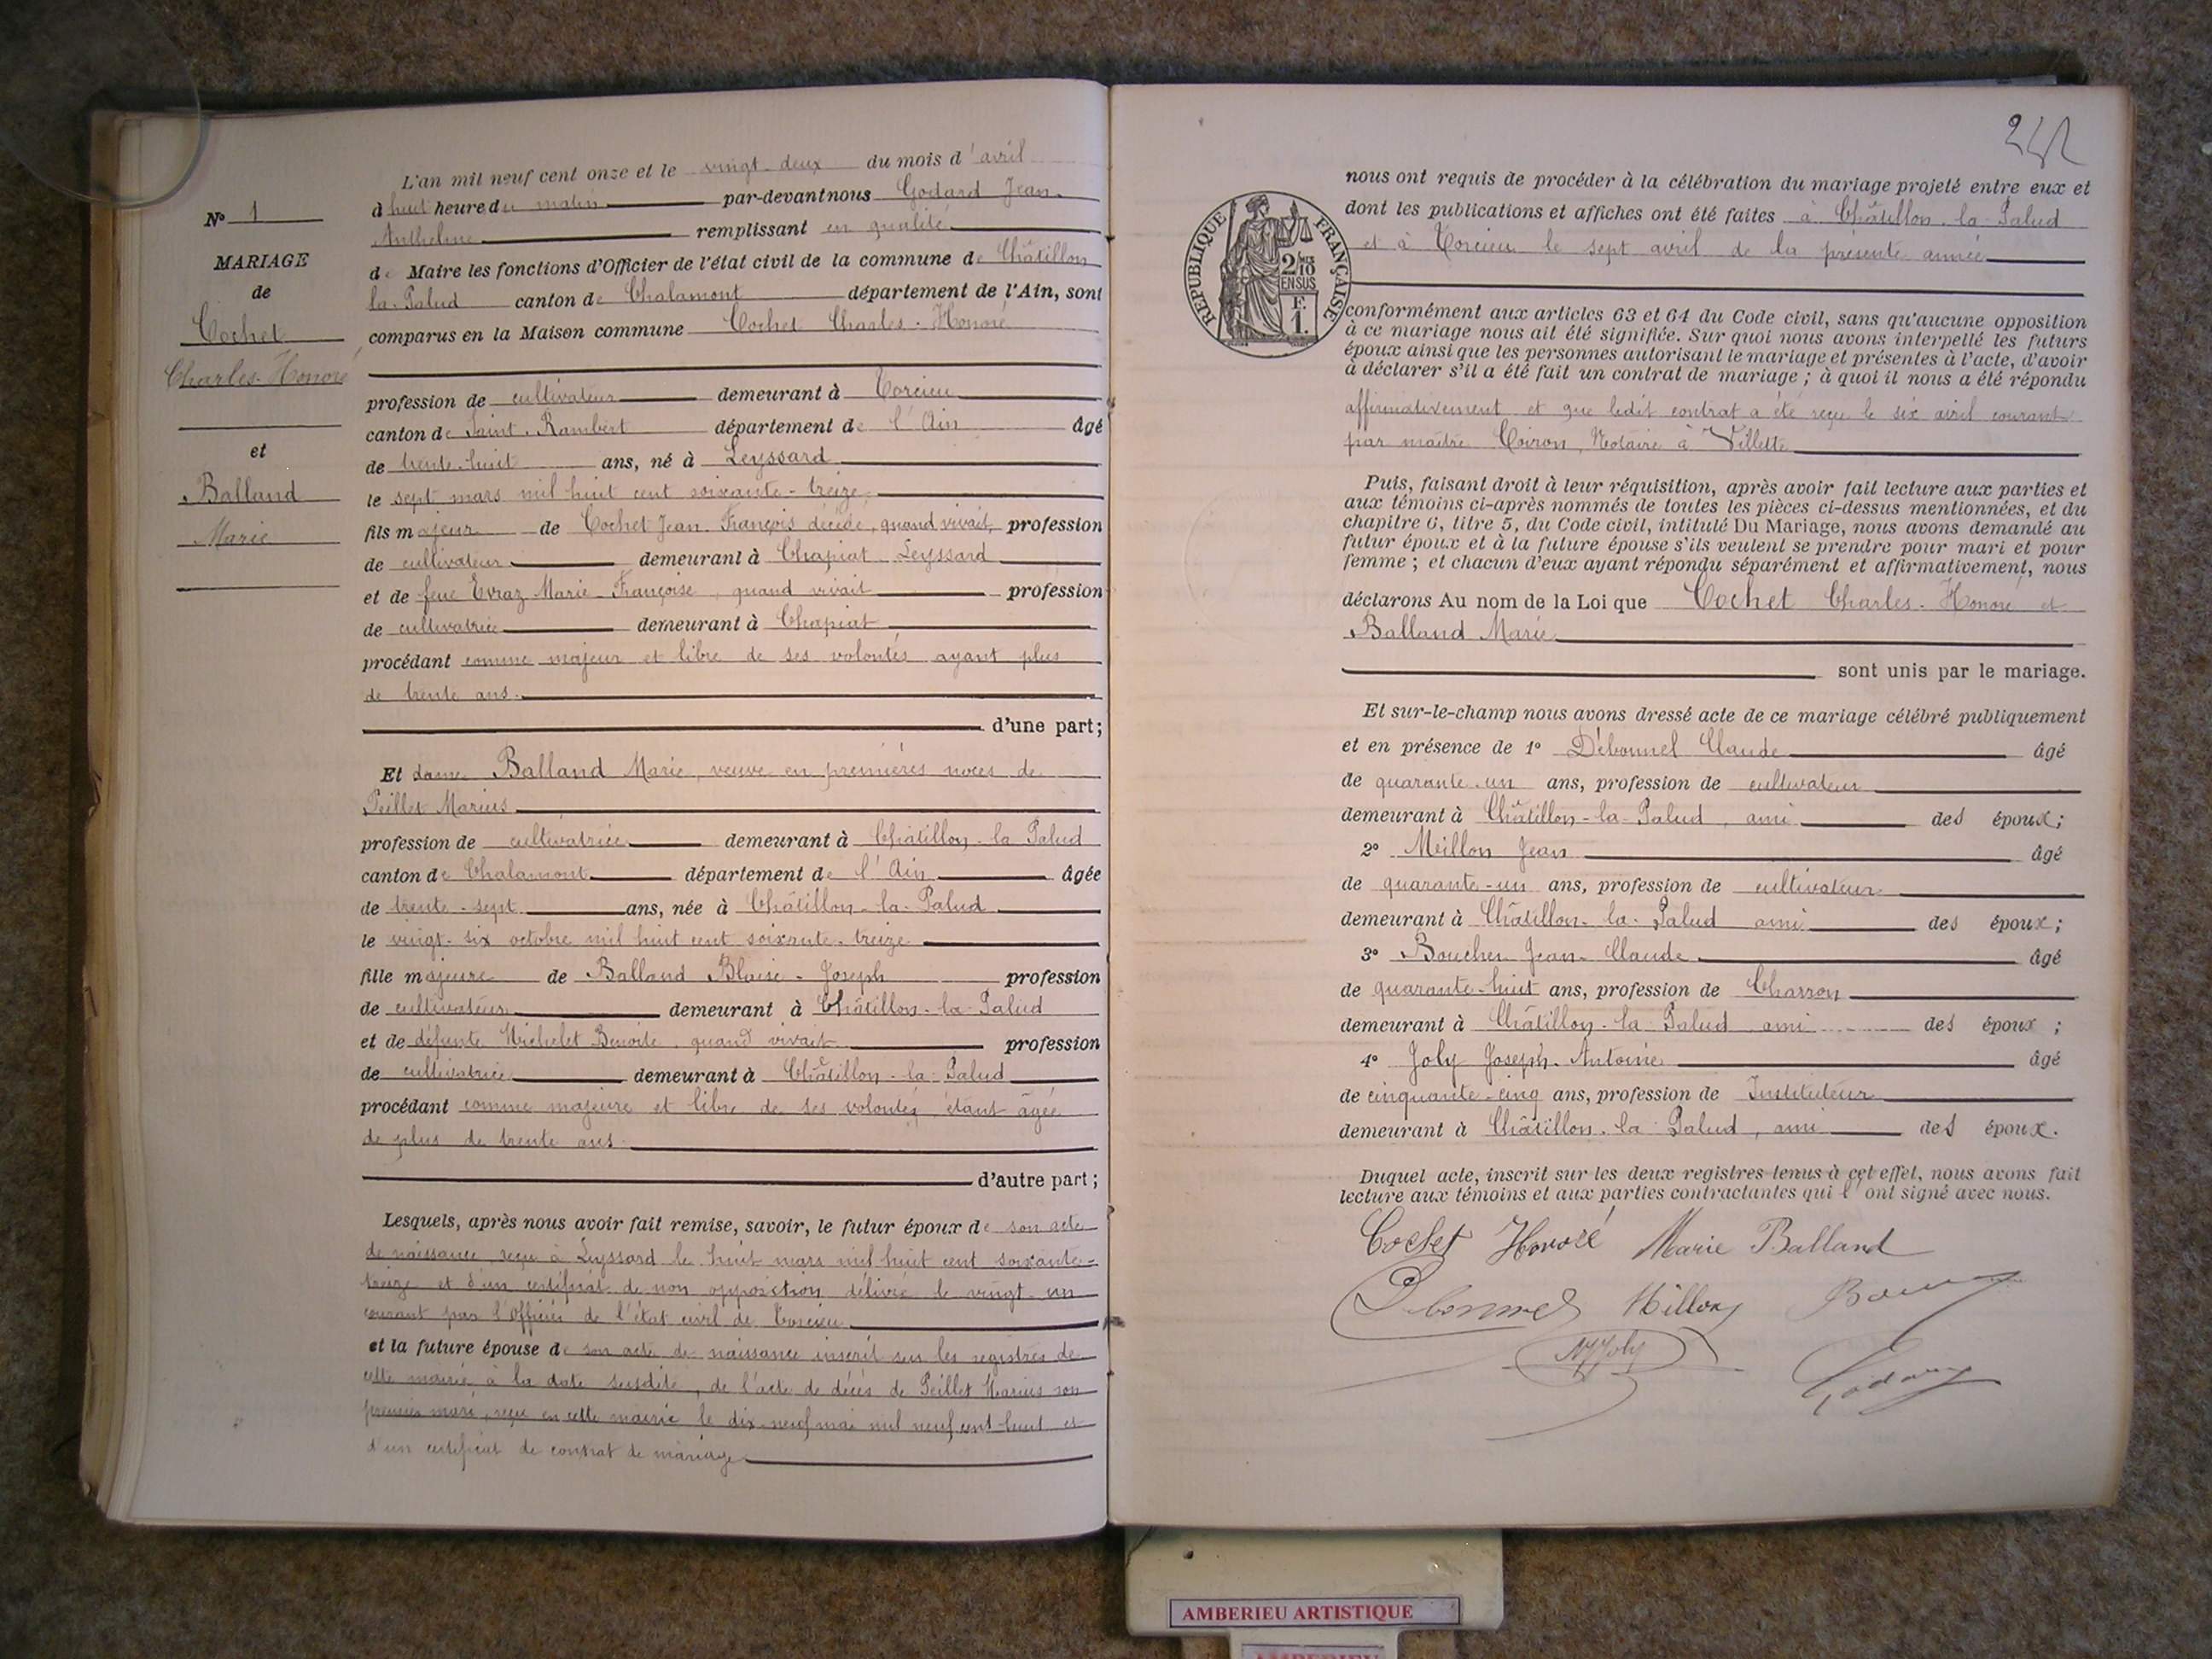 N° 1
MARIAGE
de
Cochet
Charles-Honoré
et
Balland
Marie
L'an mil neuf cent onze et le vingt-deux du mois d'avril
à huit heure du matin par-devant nous Godard Jean-
Anthelme remplissant en qualité
de Maire les fonctions d'Officier de l'état civil de la commune de Châtillon
la-Palud canton de Chalamont département de l'Ain, sont
comparus en la Maison commune Cochet Charles-Honoré
profession de cultivateur demeurant à Torcieu
canton de Saint-Rambert département de l'Ain âgé
de trente-huit ans, né à Leyssard
le sept mars mil huit cent soixante-treize
fils majeur de Cochet Jean-François décédé, quand vivait, profession
de cultivateur demeurant à Chapiat Leyssard
et de feue Evraz Marie-Françoise, quand vivait profession
de cultivatrice demeurant à Chapiat
procédant comme majeur et libre de ses volontés ayant plus
de trente ans.
d'une part;
Et dame Balland Marie, veuve en premières noces de
Peillet Marius
profession de cultivatrice demeurant à Châtillon-la-Palud
canton de Chalamont département de l'Ain âgée
de trente-sept ans, née à Châtillon-la-Palud
le vingt-six octobre mil huit cent soixante-treize
fille majeure de Balland Blaise-Joseph profession
de cultivateur demeurant à Châtillon-la-Palud
et de défunte Michelet Benoite, quand vivait profession
de cultivatrice demeurant à Châtillon-la-Palud
procédant comme majeure et libre de ses volontés, étant âgée
de plus de trente ans.
d'autre part;
Lesquels, après nous avoir fait remise, savoir, le futur époux de son acte
de naissance reçu à Leyssard le huit mars mil huit cent soixante-
treize et d'un certificat de non opposition délivré le vingt-un
courant par l'Officier de l'état civil de Torcieu
et la future épouse de son acte de naissance inscrit sur les registres de
cette mairie à la date susdite, de l'acte de décès de Peillet Marius son
premier mari, reçu en cette mairie le dix-neuf mai mil neuf cent huit et
d'un certificat de contrat de mariage
242
REPUBLIQUE FRANÇAISE
2/10
EN SUS
F.
1.
nous ont requis de procéder à la célébration du mariage projeté entre eux et
dont les publications et affiches ont été faites à Châtillon-la-Palud
et à Torcieu le sept avril de la présente année
conformément aux articles 63 et 64 du Code civil, sans qu'aucune opposition
à ce mariage nous ait été signifiée. Sur quoi nous avons interpellé les futurs
époux ainsi que les personnes autorisant le mariage et présentes à l'acte, d'avoir
à déclarer s'il a été fait un contrat de mariage; à quoi il nous a été répondu
affirmativement et que ledit contrat a été reçu le six avril courant
par maître Coiron, Notaire à Villette
Puis, faisant droit à leur réquisition, après avoir fait lecture aux parties et
aux témoins ci-après nommés de toutes les pièces ci-dessus mentionnées, et du
chapitre 6, titre 5, du Code civil, intitulé Du Mariage, nous avons demandé au
futur époux et à la future épouse s'ils veulent se prendre pour mari et pour
femme; et chacun d'eux ayant répondu séparément et affirmativement, nous
déclarons Au nom de la Loi que Cochet Charles-Honoré et
Balland Marie
sont unis par le mariage.
Et sur-le-champ nous avons dressé acte de ce mariage célébré publiquement
et en présence de 1° Débonnel Claude âgé
de quarante-un ans, profession de cultivateur
demeurant à Châtillon-la-Palud, ami des époux;
2° Meillon Jean âgé
de quarante-un ans, profession de cultivateur
demeurant à Châtillon-la-Palud ami des époux;
3° Boucher Jean-Claude âgé
de quarante-huit ans, profession de Charron
demeurant à Châtillon-la-Palud ami des époux;
4° Joly Joseph-Antoine âgé
de cinquante-cinq ans, profession de Instituteur
demeurant à Châtillon-la-Palud, ami des époux.
Duquel acte, inscrit sur les deux registres tenus à cet effet, nous avons fait
lecture aux témoins et aux parties contractantes qui l'ont signé avec nous.
Cochet Honoré Marie Balland
Debonnel Millon
Joly
Godard
AMBERIEU ARTISTIQUE
AMBERIEU